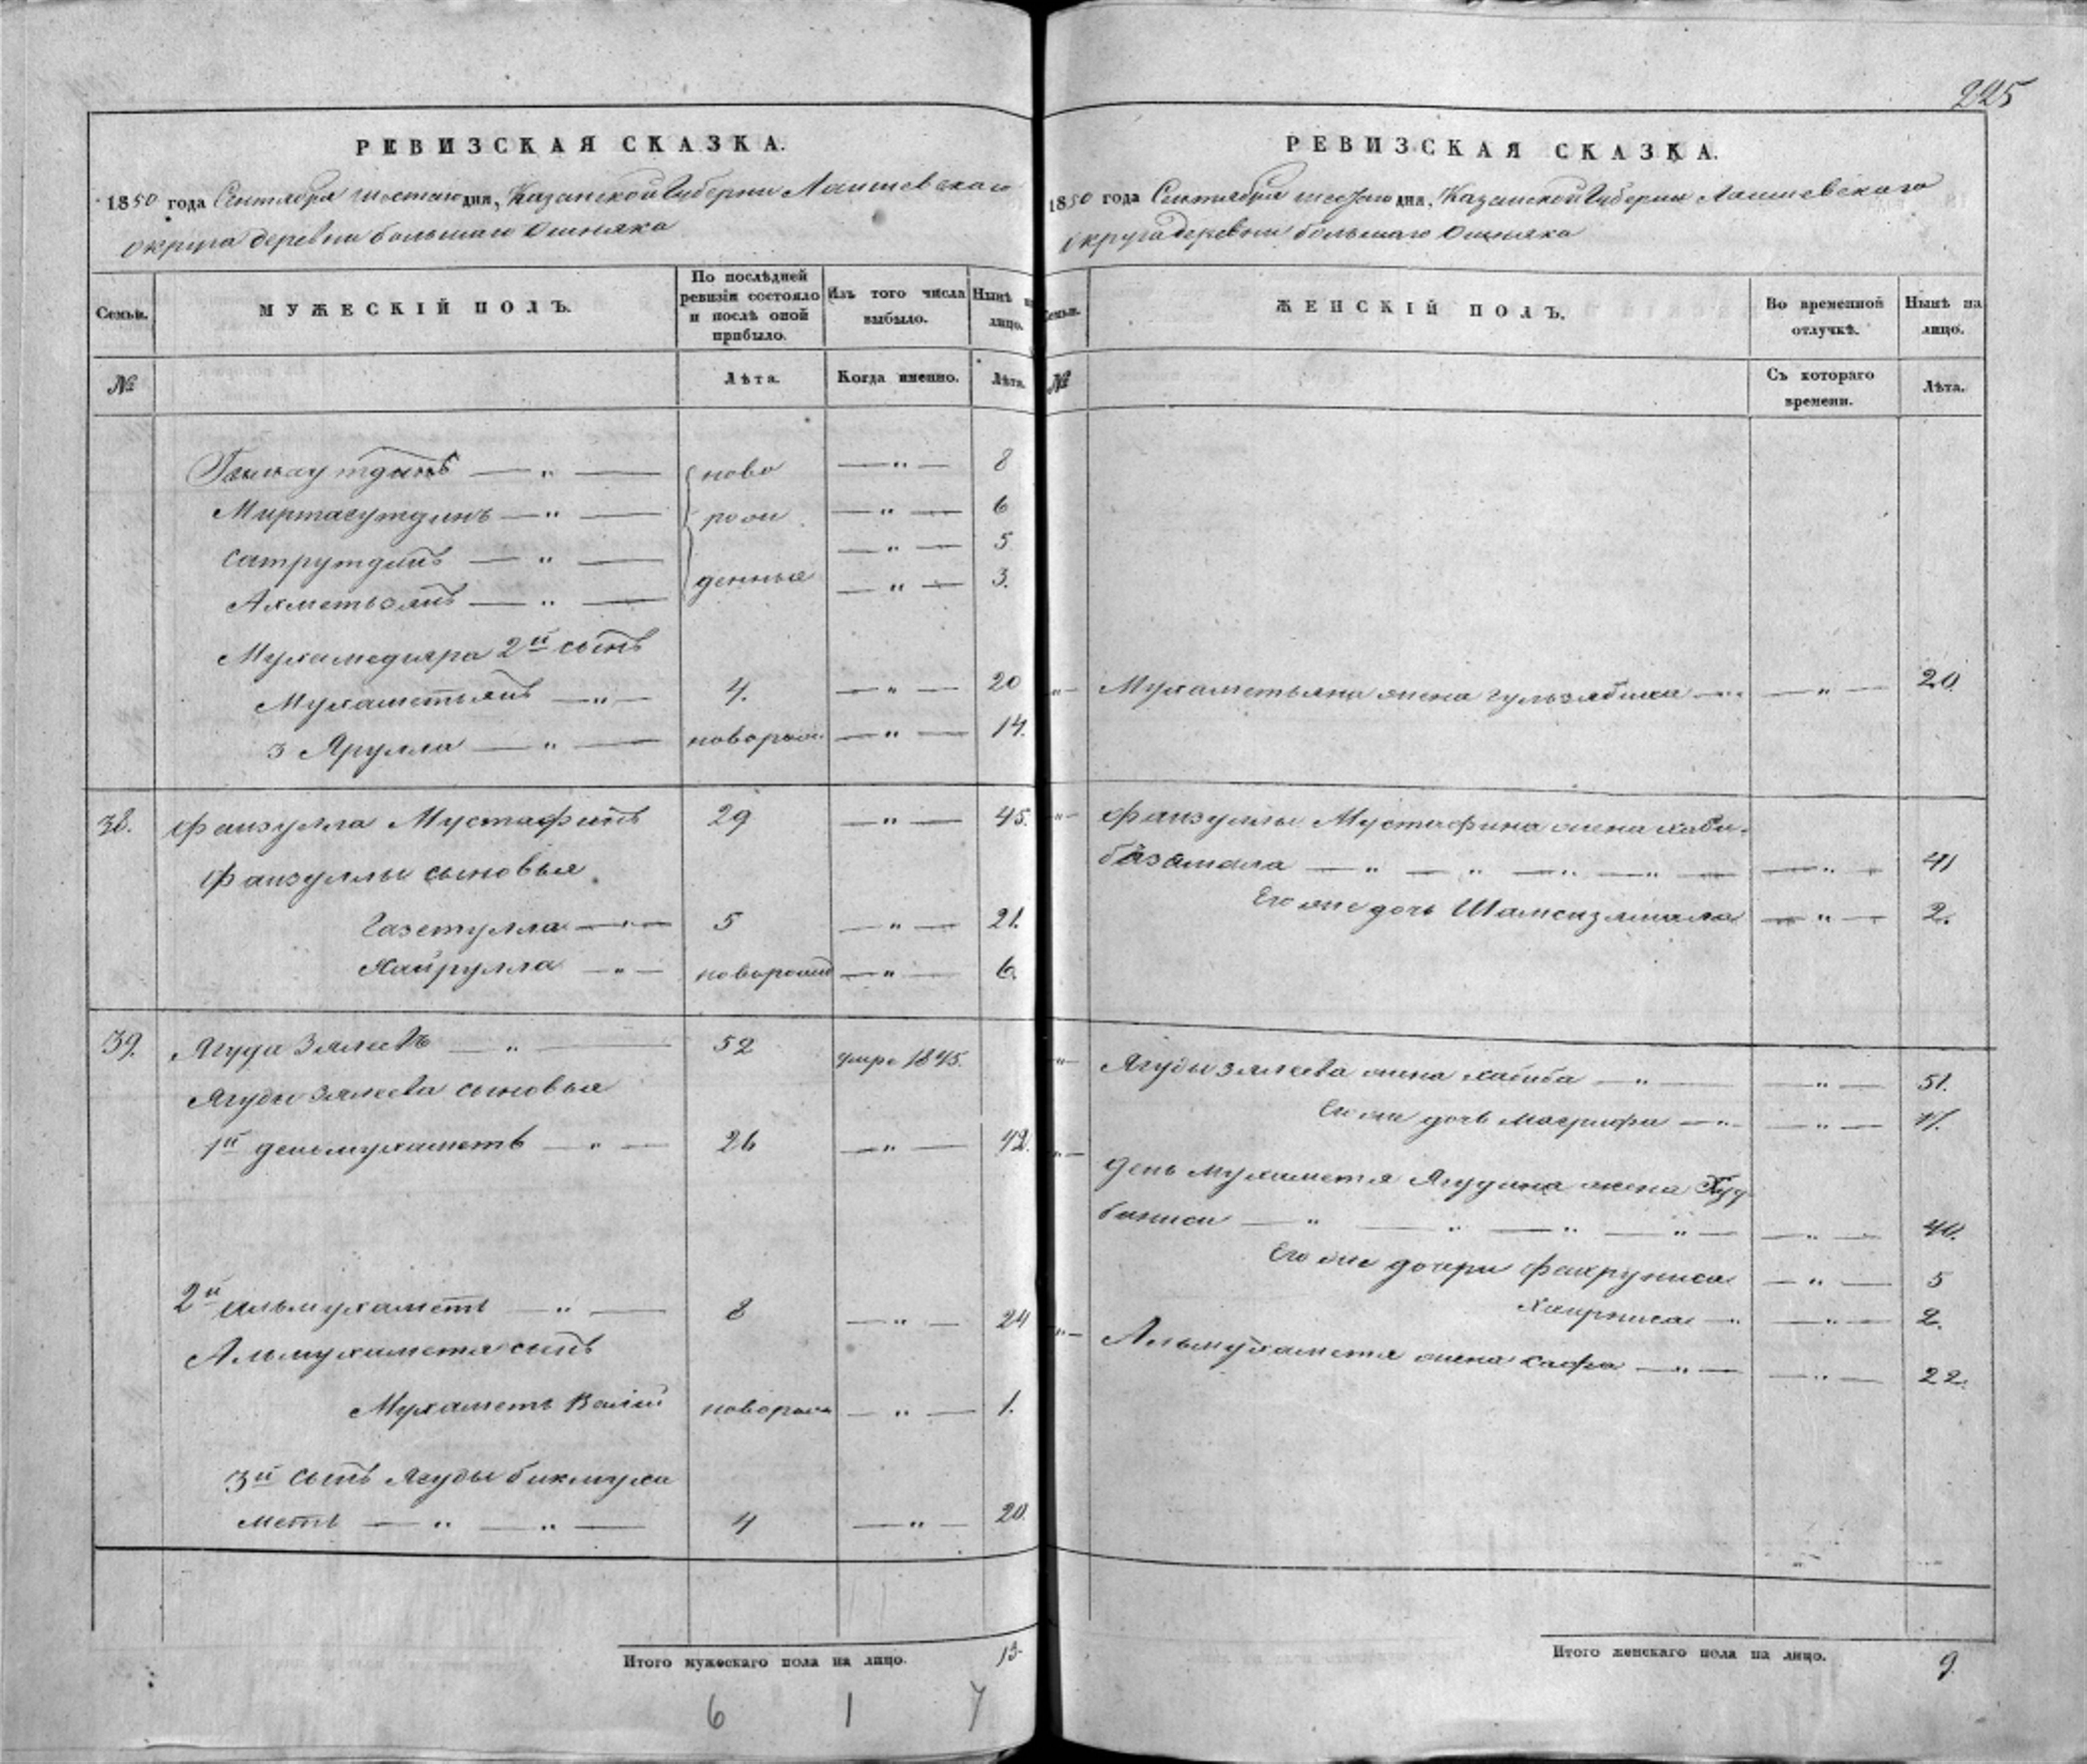 225
РЕВИЗСКАЯ СКАЗКА.
1850 года Сентября шестаго дня, Казанской Губернии Лаишевскаго
округа деревни большаго Ошняка
Семьи.
МУЖЕСКІЙ ПОЛЪ.
По послѣдней
ревизіи состояло
и послѣ оной
прибыло.
Изъ того числа
выбыло.
Нынѣ на
лицо.
№
Лѣта.
Когда именно.
Лѣта.
ново — " — 8
Миртасутдинъ — " — рож — " — 6
Сатрутдинъ — " — — " — 5
Ахметьзянъ — " — денные — " — 3.
Мухамедияра 2й сынъ
Мухаметьянъ — " — 4. — " — 20
3 Ярулла — " — новорож. — " — 14.
38. Фаизулла Мустафинъ 29 — " — 45.
Фаизуллы сыновья
Газетулла — " — 5 — " — 21.
Хайрулла — " — новорожд — " — 6.
39. Ягуда Зялеевъ — " — 52 умре 1845.
Ягуды Зялеева сыновья
1й деньмухаметь — " — 26 — " — 42.
2й альмухаметь — " — 8 — " — 24
Альмухаметя сынъ
Мухаметь Валій новорож — " — 1.
3й сынъ Ягуды бикмуха
меть — " — " — 4 — " — 20.
Итого мужескаго пола на лицо. 13
6 1 7
РЕВИЗСКАЯ СКАЗКА.
1850 года Сентября шестаго дня, Казанской Губернии Лаишевскаго
округа деревни большаго Ошняка
Семьи.
ЖЕНСКІЙ ПОЛЪ.
Во временной
отлучкѣ.
Нынѣ на
лицо.
№
Съ котораго
времени.
Лѣта.
" — Мухаметьяна жена гульзябика — " — " — 20.
" — Фаизуллы Мустафина жена хаби-
базямала — " — " — " — " — " — 41
Его же дочь Шамсизямала — " — 2.
" — Ягуды зялеева жена хабиба — " — " — 51.
Его же дочь магрифа — " — " — 17.
" — день мухаметя Ягудина жена Худ
баниса — " — " — " — " — " — 40.
Его же дочери Фахруниса — " — 5
Хаирниса — " — " — 2.
" — Альмухаметя жена сафа — " — " — 22.
Итого женскаго пола на лицо. 9